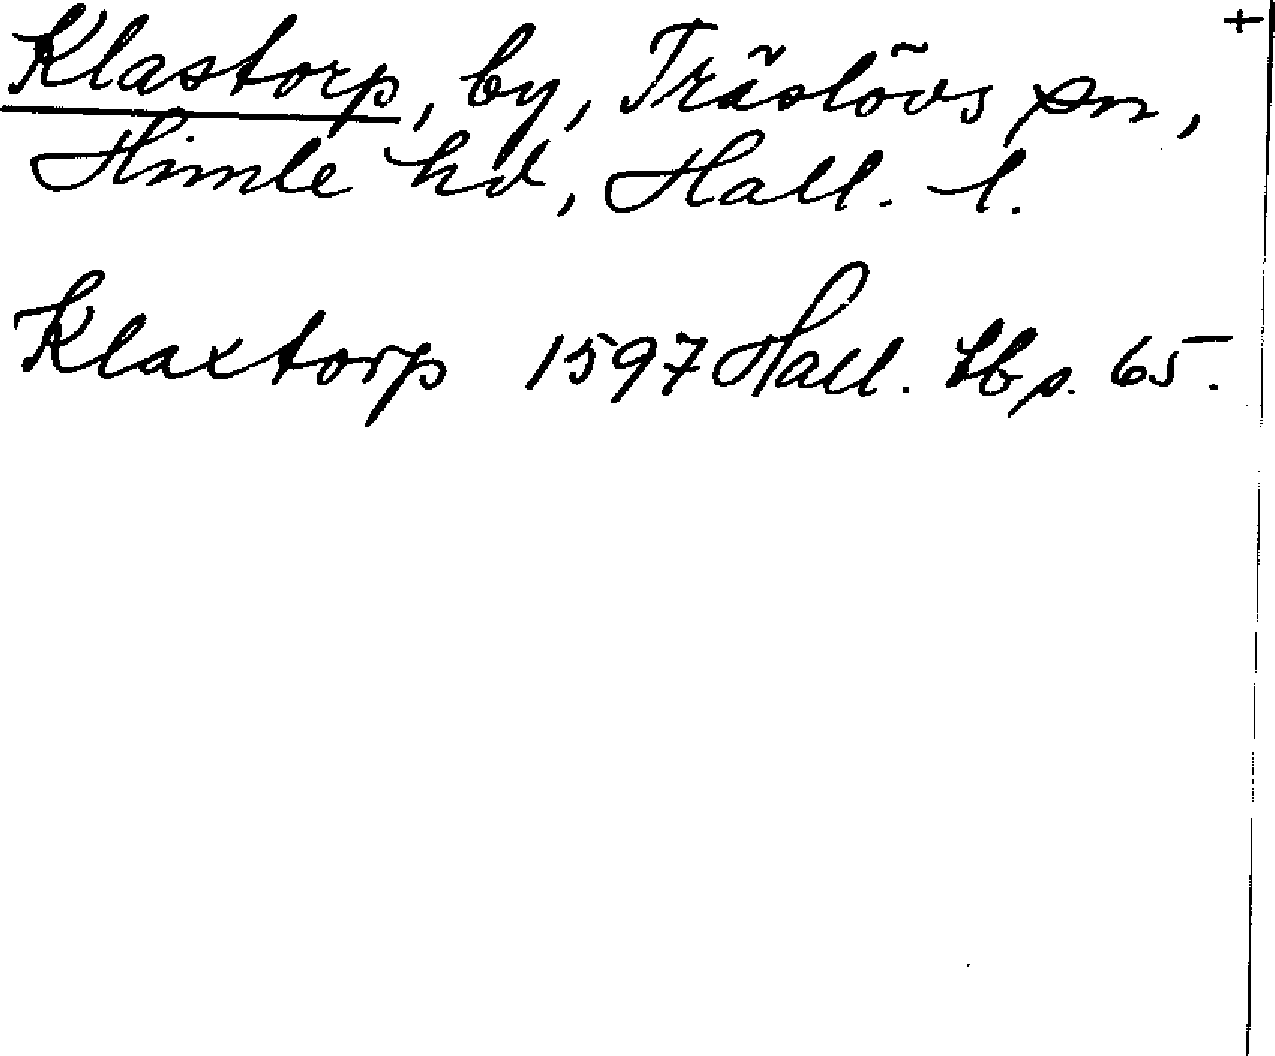 Klastorp, by, Träslövs sn, +
Himle hd, Hall. l.
Klaxtorp 1597 Hall. tb s. 65.